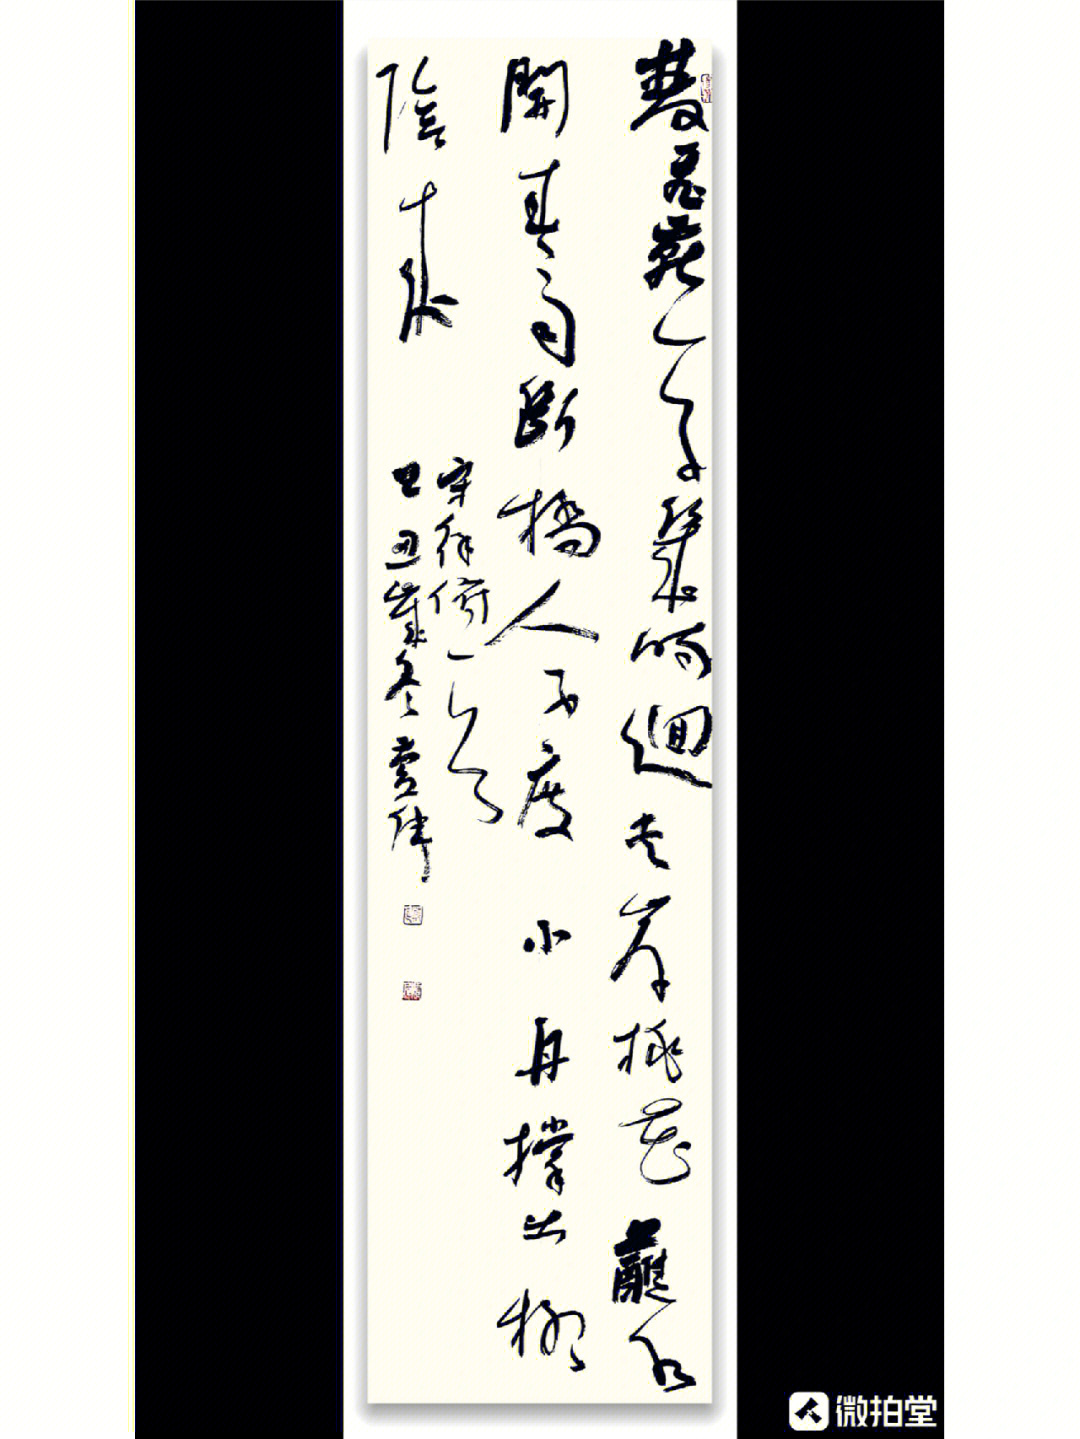 雙飛燕子幾時迴夾岸桃花蘸水
開春雨斷橋人不度小舟撐出柳
陰來
宋徐俯一首
己丑歲冬
微拍堂